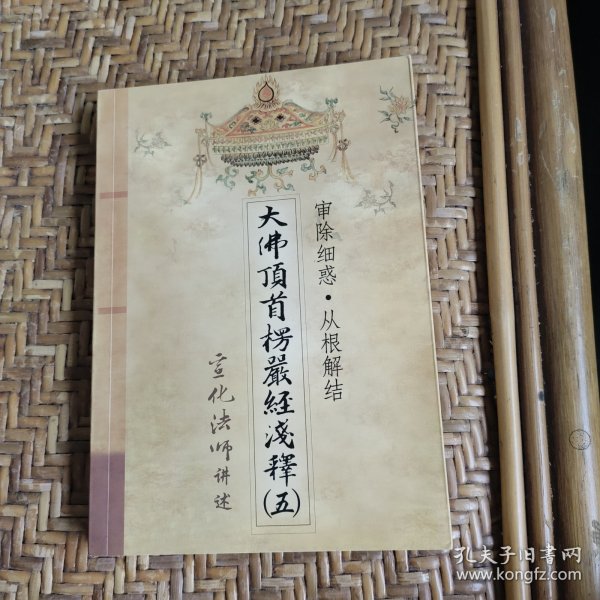 审除细惑·从根解结
大佛頂首楞嚴經淺釋(五)
宣化法师讲述
孔夫子旧书网
www.kongfz.com